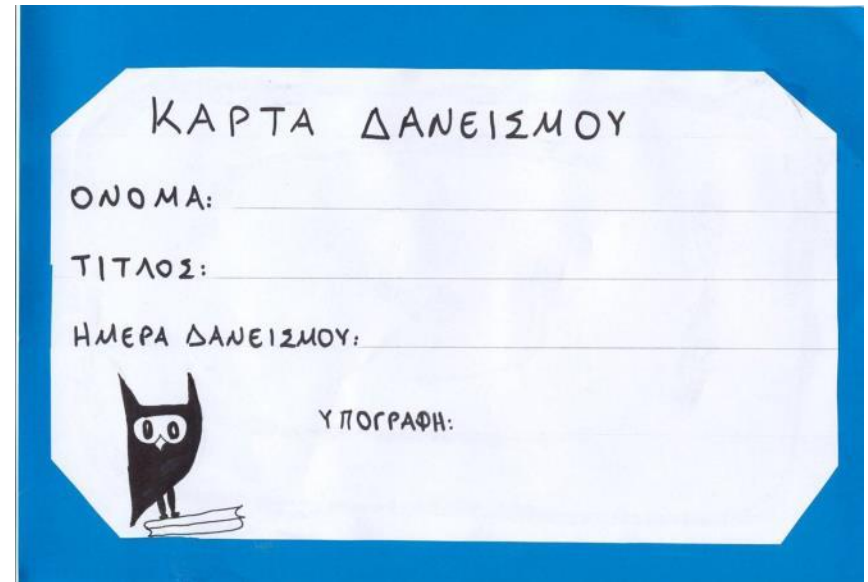 ΚΑΡΤΑ ΔΑΝΕΙΣΜΟΥ
ΟΝΟΜΑ:
ΤΙΤΛΟΣ:
ΗΜΕΡΑ ΔΑΝΕΙΣΜΟΥ:
ΥΠΟΓΡΑΦΗ: